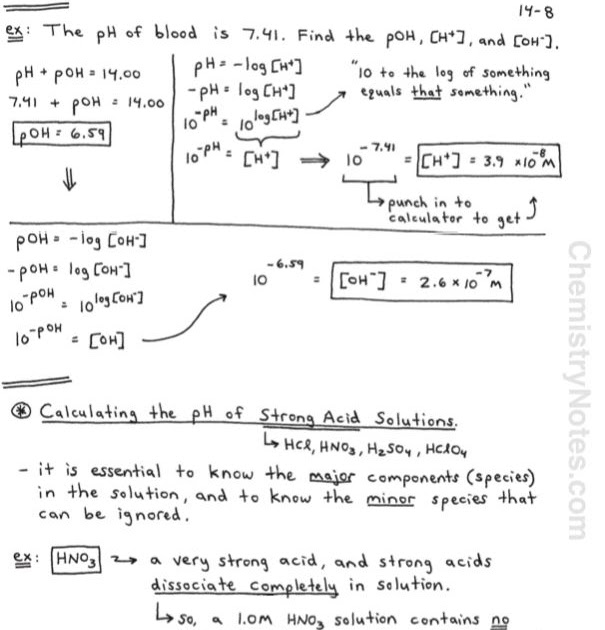 14-8
ex: The pH of blood is 7.41. Find the pOH, [H⁺], and [OH⁻].
pH + pOH = 14.00
7.41 + pOH = 14.00
pOH = 6.59
⇓
pH = -log[H⁺]
-pH = log[H⁺]
10^-pH = 10^log[H⁺]
10^-pH = [H⁺]
"10 to the log of something
equals that something."
⇒ 10^-7.41 = [H⁺] = 3.9 x10^-8 M
↳ punch in to
calculator to get
pOH = -log [OH⁻]
-pOH = log [OH⁻]
10^-pOH = 10^log[OH⁻]
10^-pOH = [OH]
10^-6.59 = [OH⁻] = 2.6 x 10^-7 M
⊛ Calculating the pH of Strong Acid Solutions.
↳ HCl, HNO₃, H₂SO₄, HClO₄
- it is essential to know the major components (species)
in the solution, and to know the minor species that
can be ignored.
ex: HNO₃ → a very strong acid, and strong acids
dissociate completely in solution.
↳ so, a 1.0M HNO₃ solution contains no
ChemistryNotes.com